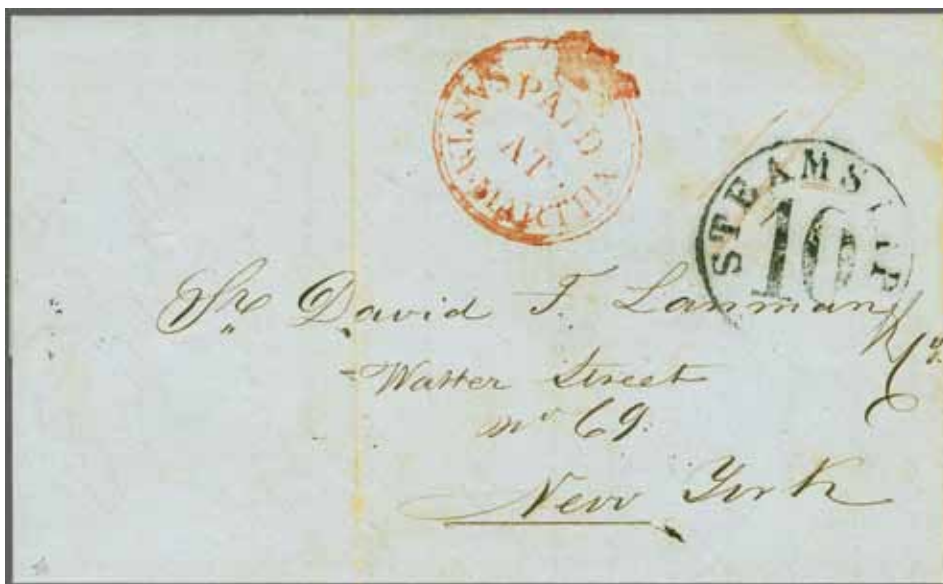 PAID
AT
STEAMSHIP
10
Sr David T. Lanman
Watter Street
no 69.
New York